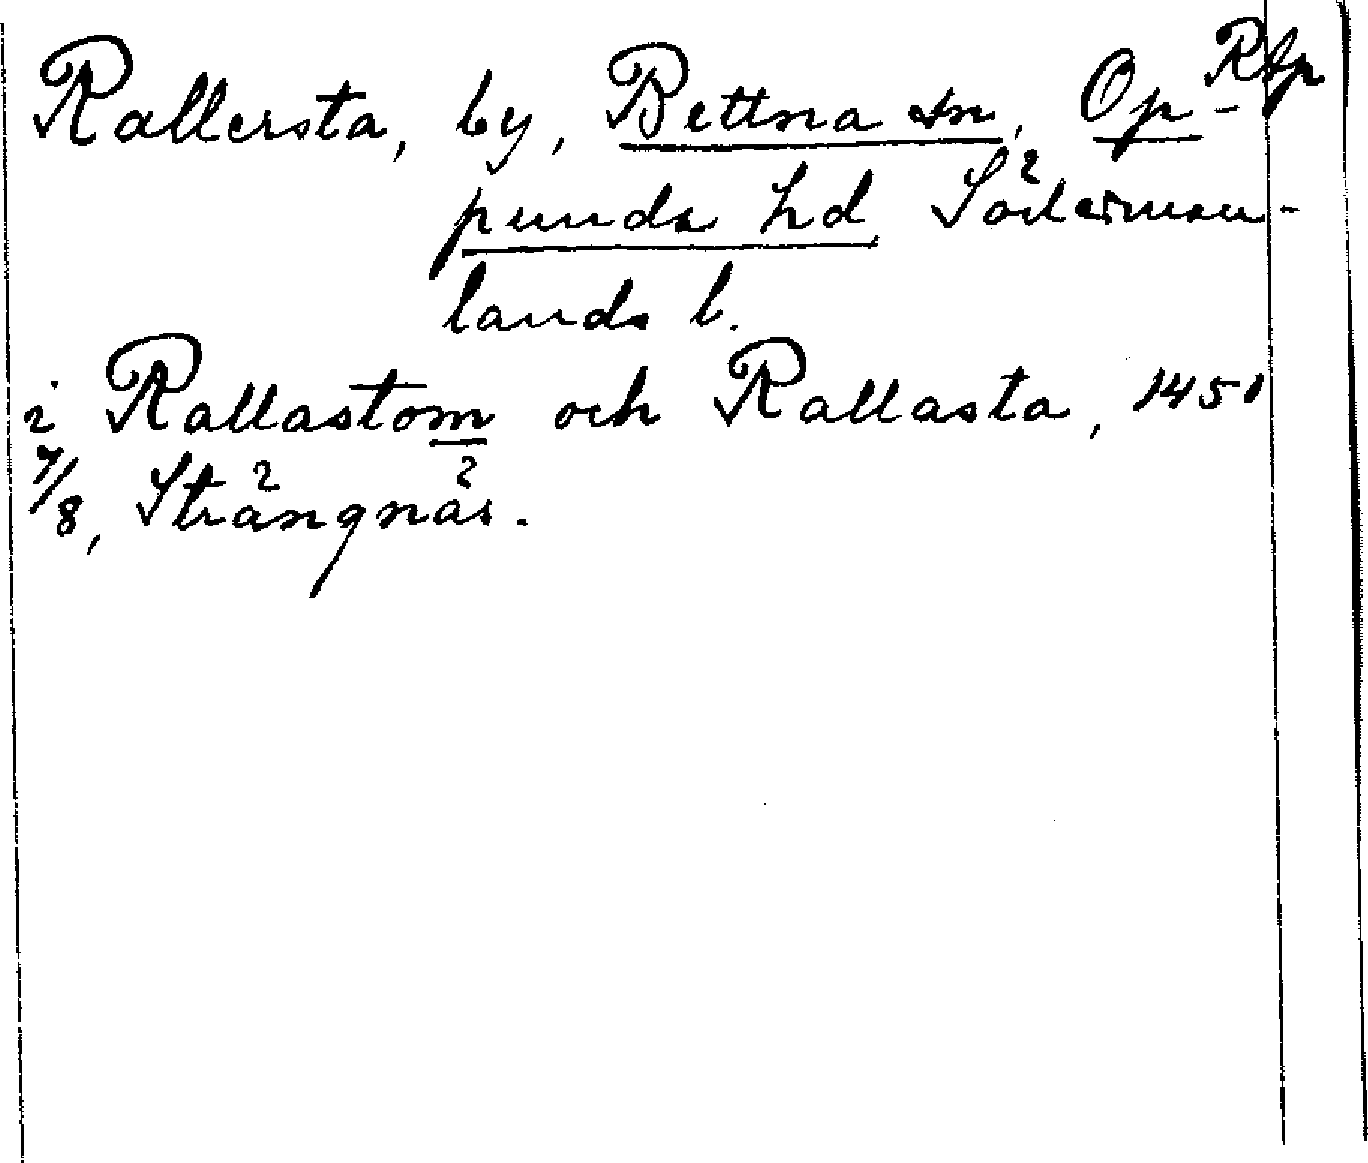 Rap
Rallersta, by, Bettna sn, Op-
punda hd, Söderman-
lands l.
i Rallastom och Rallasta, 1451
7/8, Strängnäs.